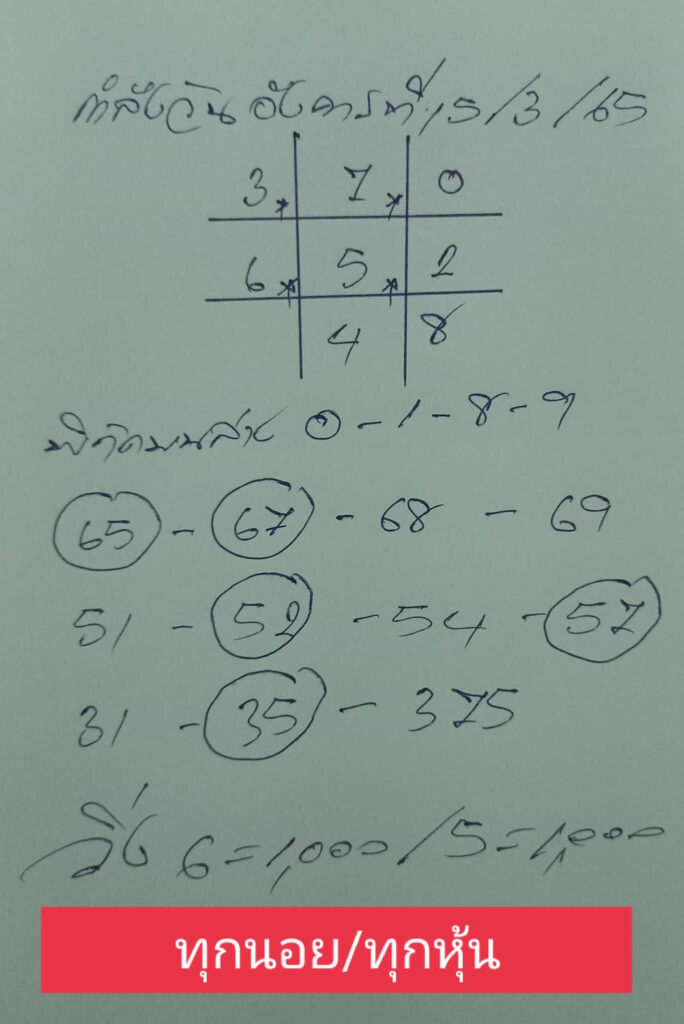 กำลังวัน อังคารที่ 15/3/65
3 7 0
6 5 2
4 8
พิกัดบนล่าง 0-1-8-9
65 - 67 - 68 - 69
51 - 52 - 54 - 57
31 - 35 - 375
วิ่ง 6=1,000/5=1,000
ทุกนอย/ทุกหุ้น